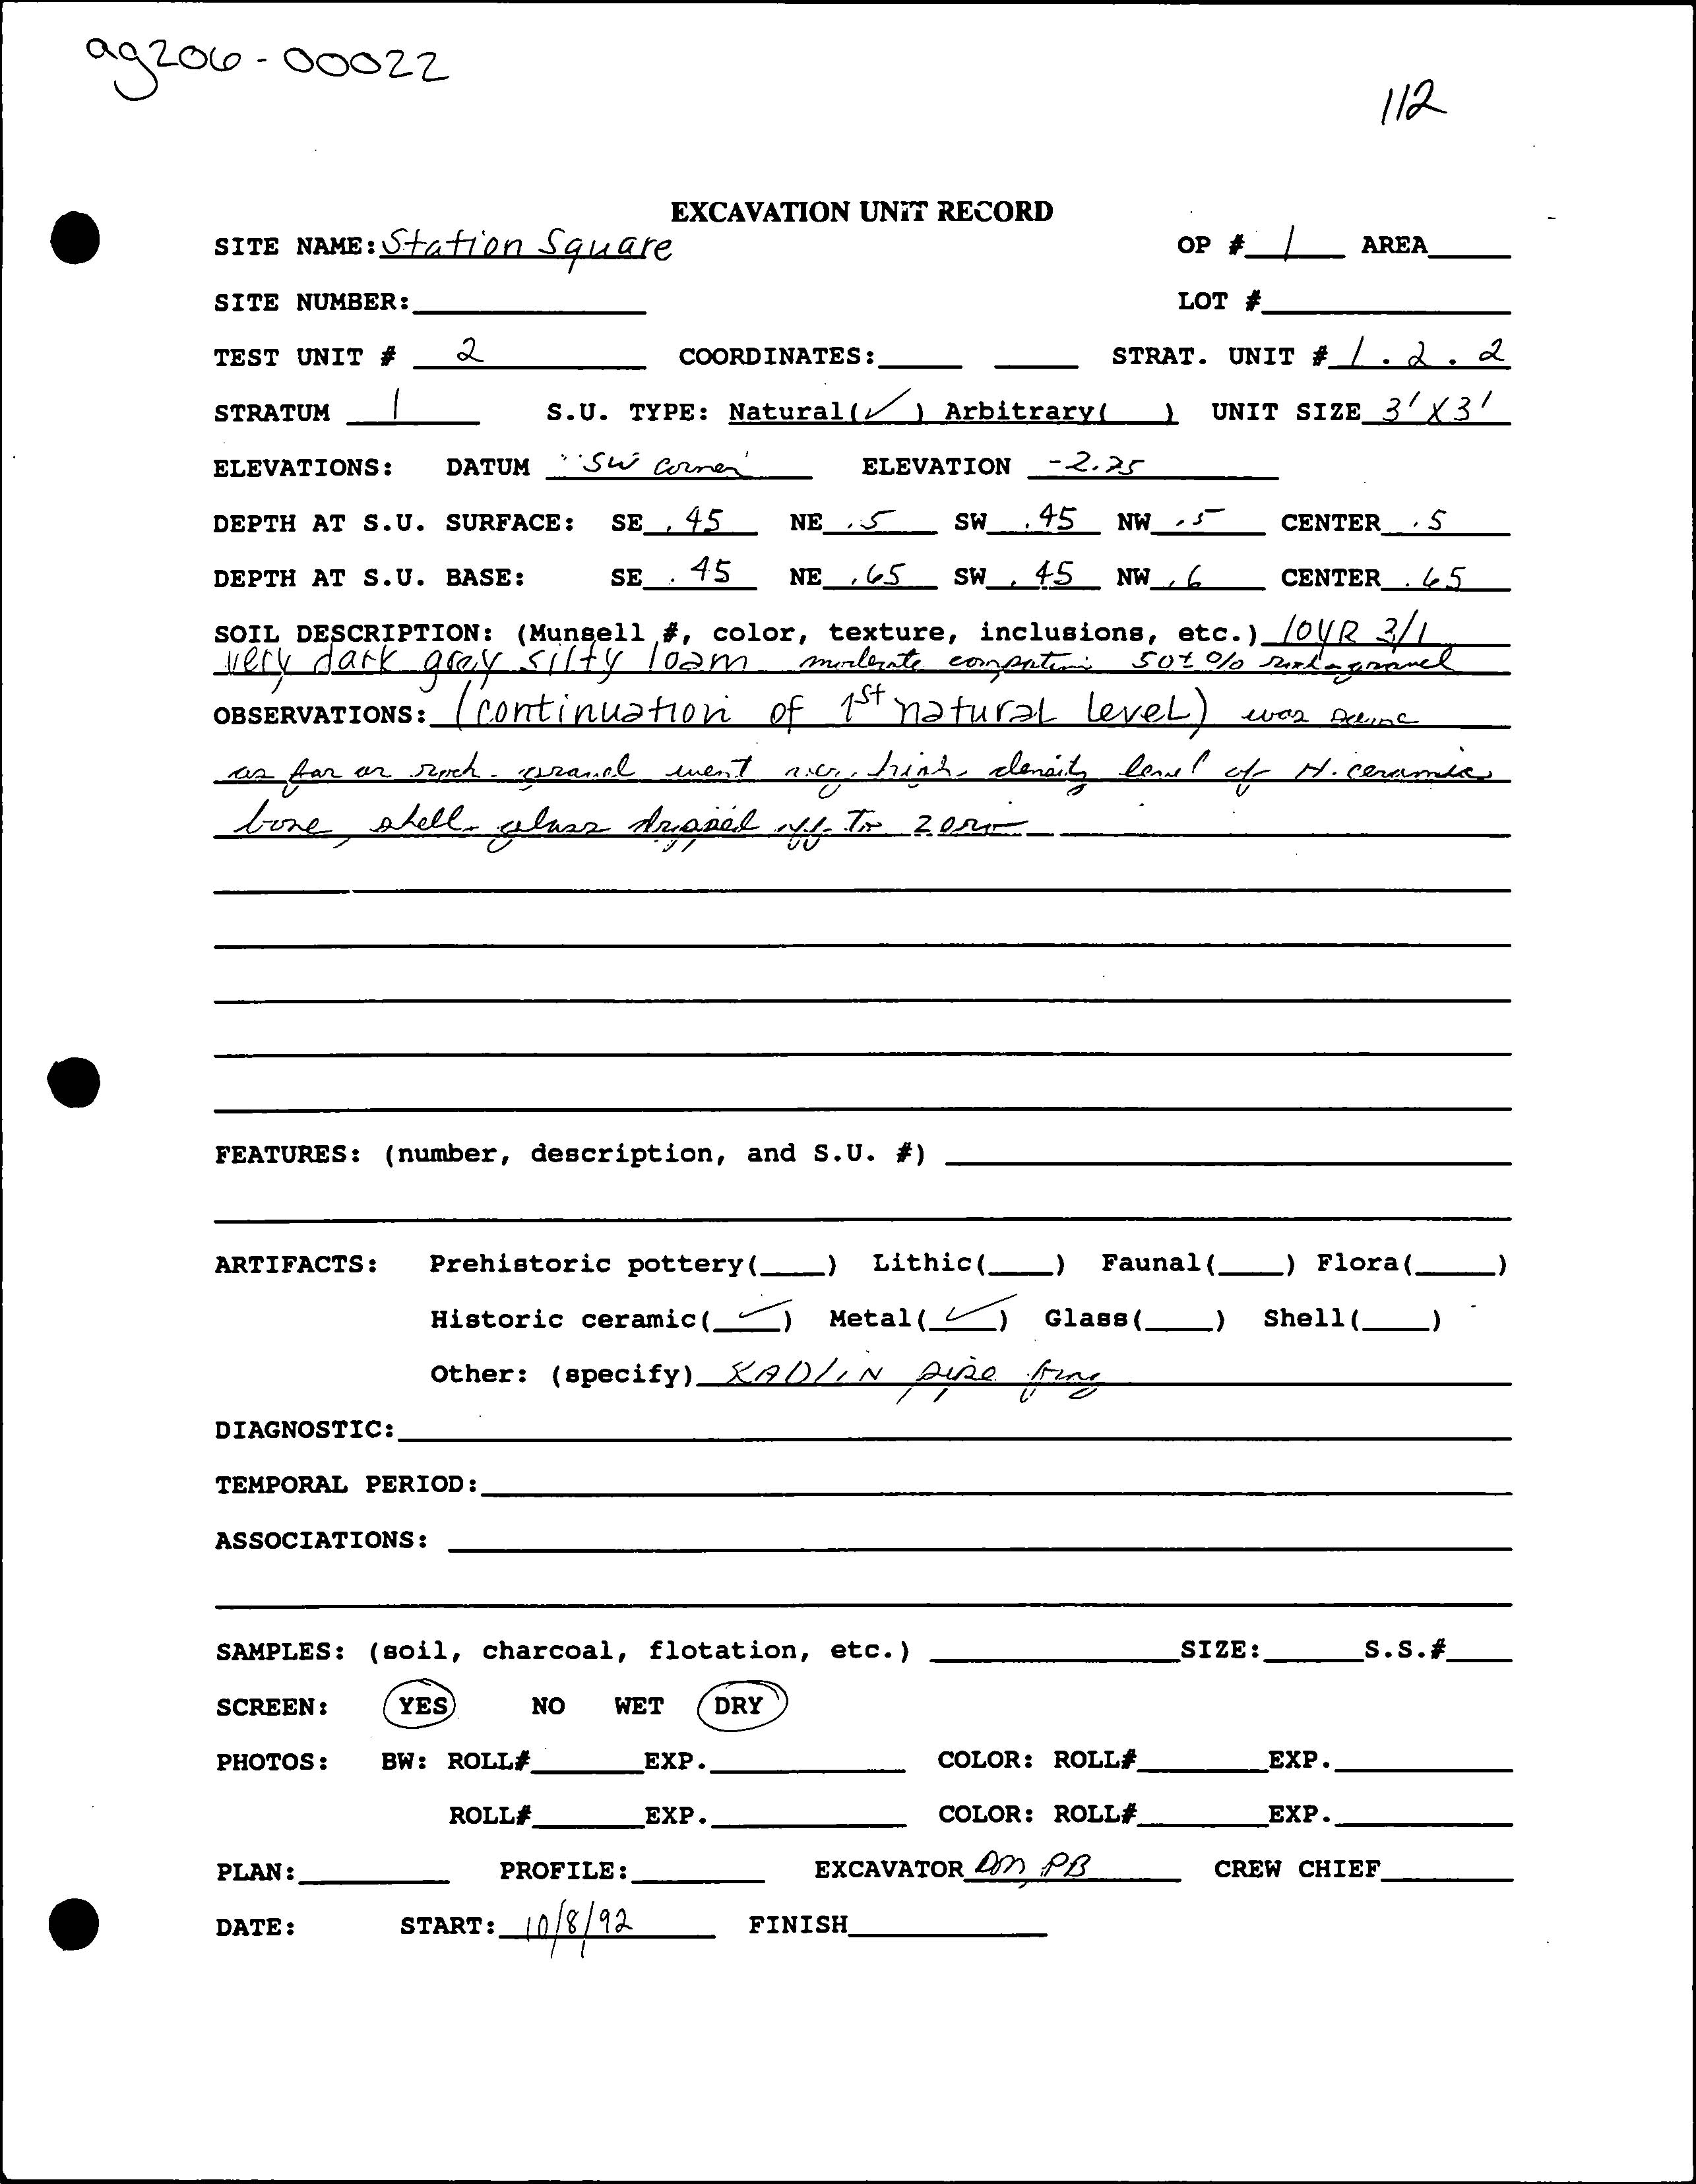 ag206-00022
112
EXCAVATION UNIT RECORD
SITE NAME: Station Square OP # 1 AREA
SITE NUMBER: LOT #
TEST UNIT # 2 COORDINATES: STRAT. UNIT # 1.2.2
STRATUM 1 S.U. TYPE: Natural(✓) Arbitrary( ) UNIT SIZE 3'X3'
ELEVATIONS: DATUM "SW corner" ELEVATION -2.25
DEPTH AT S.U. SURFACE: SE .45 NE .5 SW .45 NW .5 CENTER .5
DEPTH AT S.U. BASE: SE .45 NE .65 SW .45 NW .6 CENTER .65
SOIL DESCRIPTION: (Munsell #, color, texture, inclusions, etc.) 10YR 3/1
very dark gray silty loam moderate 50± % rock-gravel
OBSERVATIONS: (continuation of 1st natural level) was same
as far as rock-gravel went high density level of H. ceramics
bone, shell glass dropped off to zero
FEATURES: (number, description, and S.U. #)
ARTIFACTS: Prehistoric pottery( ) Lithic( ) Faunal( ) Flora( )
Historic ceramic(✓) Metal(✓) Glass( ) Shell( )
Other: (specify) KAOLIN pipe frag
DIAGNOSTIC:
TEMPORAL PERIOD:
ASSOCIATIONS:
SAMPLES: (soil, charcoal, flotation, etc.) SIZE: S.S.#
SCREEN: YES NO WET DRY
PHOTOS: BW: ROLL# EXP. COLOR: ROLL# EXP.
ROLL# EXP. COLOR: ROLL# EXP.
PLAN: PROFILE: EXCAVATOR DM, PB CREW CHIEF
DATE: START: 10/8/92 FINISH